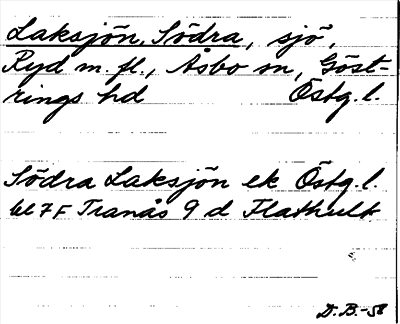 Laksjön, Södra, sjö,
Ryd m. fl., Åsbo sn, Göst-
rings hd Östg. l.
Södra Laksjön ek Östg. l.
bl 7F Tranås 9 d Flathult
D. B. -58